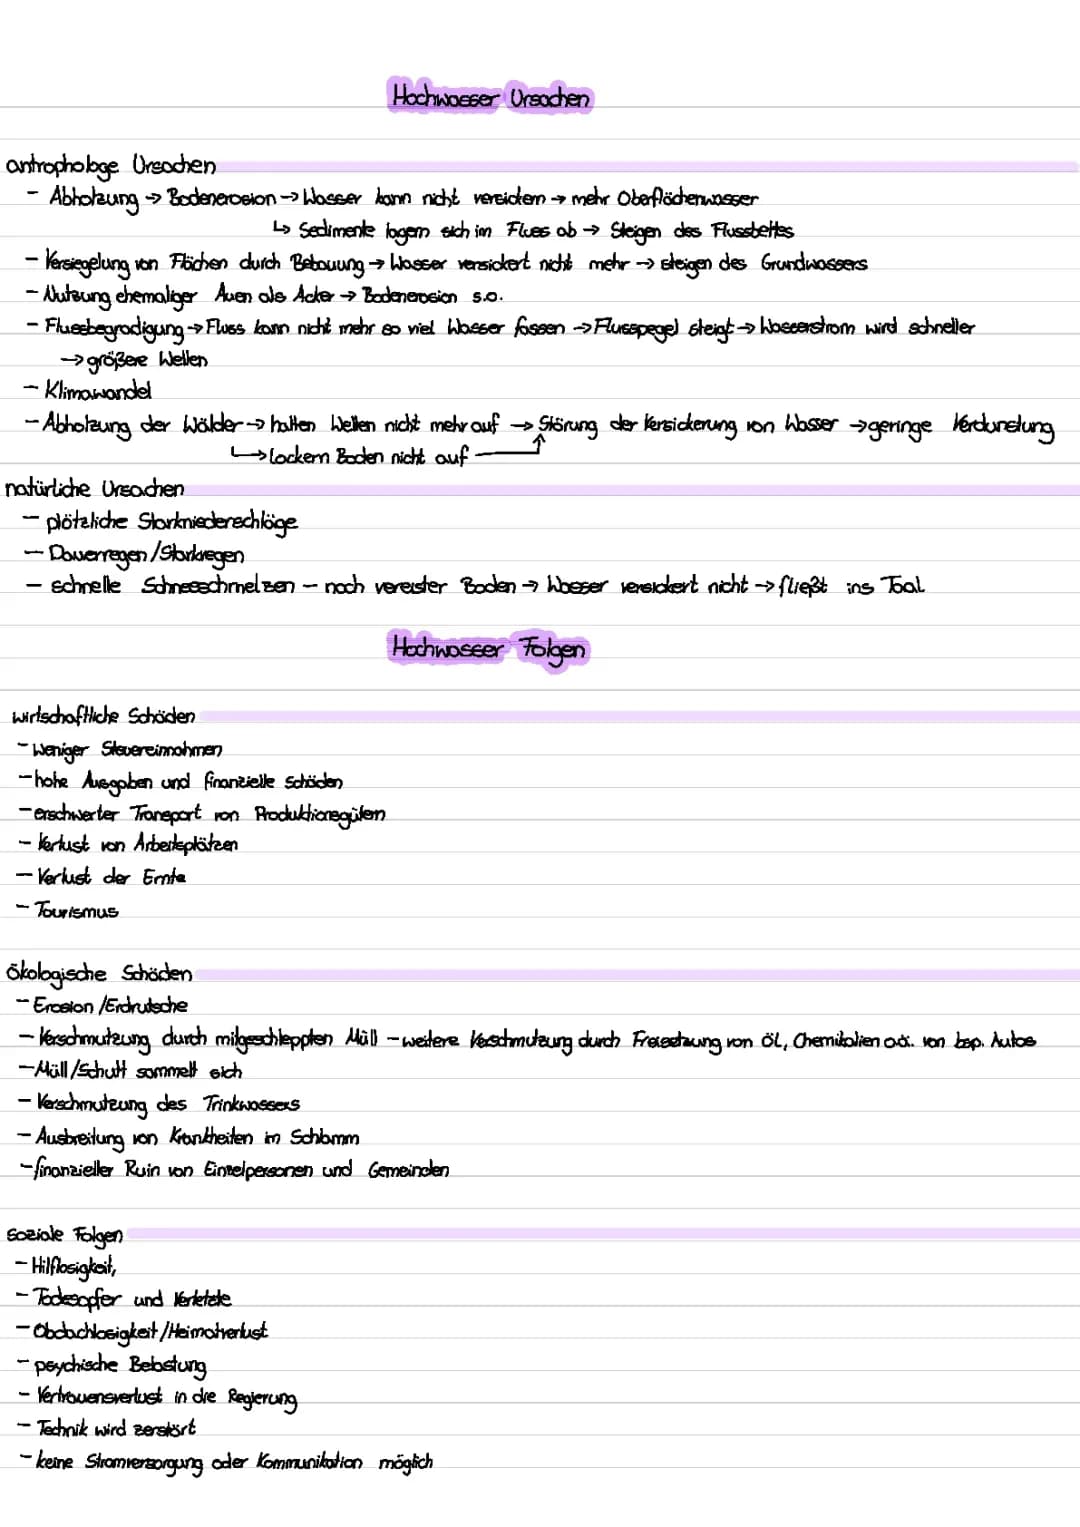 Hochwasser Ursachen
antrophologe Ursachen
- Abholzung → Bodenerosion → Wasser kann nicht versickern → mehr Oberflächenwasser
↳ Sedimente lagern sich im Fluss ab → Steigen des Flussbettes
- Versiegelung von Flächen durch Bebauung → Wasser versickert nicht mehr → steigen des Grundwassers
- Nutzung ehemaliger Auen als Acker → Bodenerosion s.o.
- Flussbegradigung → Fluss kann nicht mehr so viel Wasser fassen → Flusspegel steigt → Wasserstrom wird schneller
→ größere Wellen
- Klimawandel
- Abholzung der Wälder → halten Wellen nicht mehr auf → Störung der Versickerung von Wasser → geringe Verdunstung
↳ lockern Boden nicht auf
natürliche Ursachen
- plötzliche Starkniederschläge
- Dauerregen/Starkregen
- schnelle Schneeschmelzen - noch vereister Boden → Wasser versickert nicht → fließt ins Taal
Hochwasser Folgen
wirtschaftliche Schäden
- weniger Steuereinnahmen
- hohe Ausgaben und finanzielle Schäden
- erschwerter Transport von Produktionsgütern
- Verlust von Arbeitsplätzen
- Verlust der Ernte
- Tourismus
Ökologische Schäden
- Erosion/Erdrutsche
- Verschmutzung durch mitgeschleppten Müll - weitere Verschmutzung durch Freisetzung von ÖL, Chemikalien o.ä. von bsp. Autos
- Müll/Schutt sammelt sich
- Verschmutzung des Trinkwassers
- Ausbreitung von Krankheiten im Schlamm
- finanzieller Ruin von Einzelpersonen und Gemeinden
soziale Folgen
- Hilflosigkeit,
- Todesopfer und Verletzte
- Obdachlosigkeit/Heimatverlust
- psychische Belastung
- Vertrauensverlust in die Regierung
- Technik wird zerstört
- keine Stromversorgung oder Kommunikation möglich